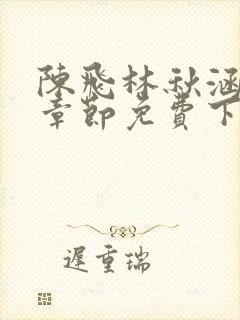 陳飛林秋涵
章節免費下
遲重瑞